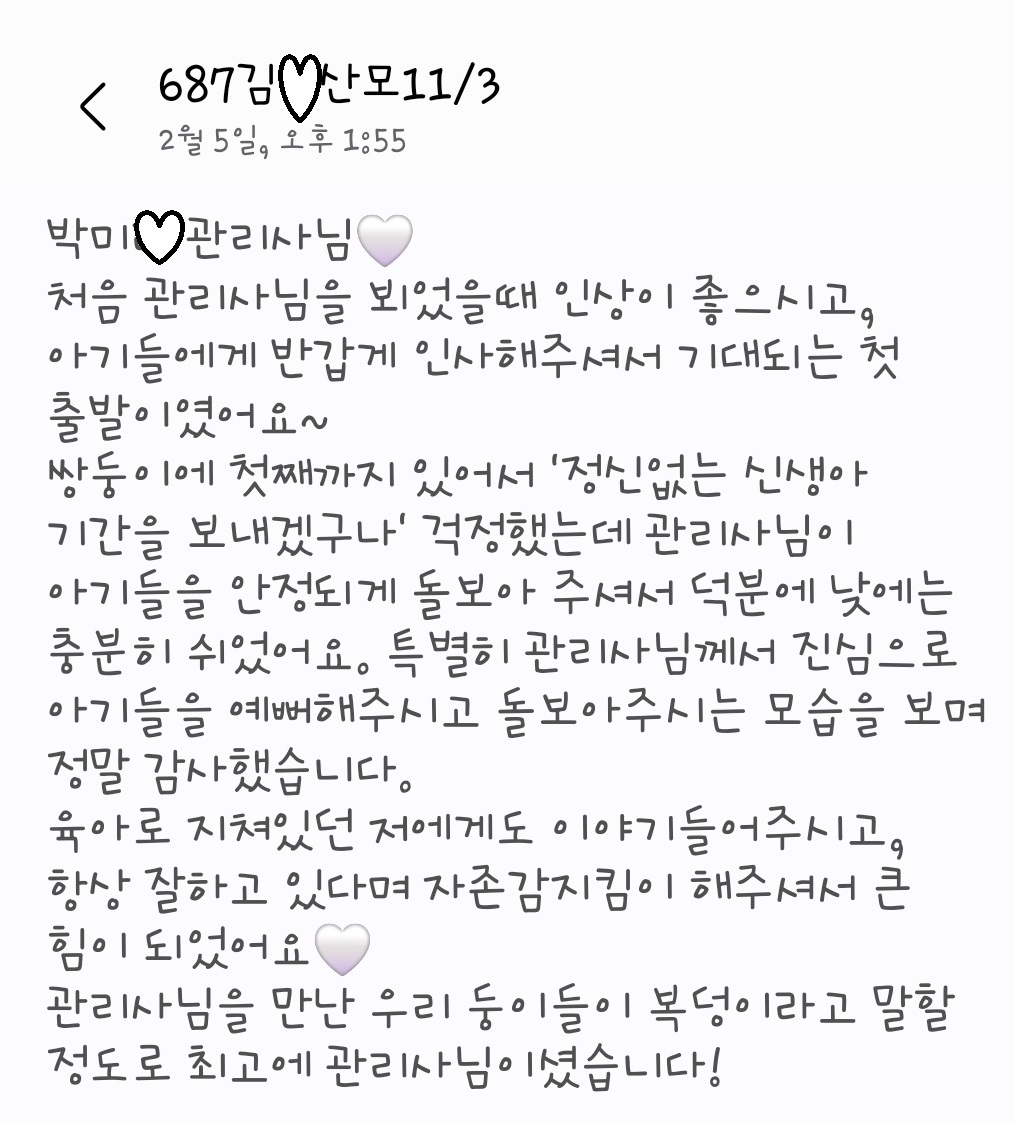 687김♡산모11/3
2월 5일, 오후 1:55
박미♡관리사님🤍
처음 관리사님을 뵈었을때 인상이 좋으시고,
아기들에게 반갑게 인사해주셔서 기대되는 첫
출발이였어요~
쌍둥이에 첫째까지 있어서 '정신없는 신생아
기간을 보내겠구나' 걱정했는데 관리사님이
아기들을 안정되게 돌보아 주셔서 덕분에 낮에는
충분히 쉬었어요. 특별히 관리사님께서 진심으로
아기들을 예뻐해주시고 돌보아주시는 모습을 보며
정말 감사했습니다.
육아로 지쳐있던 저에게도 이야기들어주시고,
항상 잘하고 있다며 자존감지킴이 해주셔서 큰
힘이 되었어요🤍
관리사님을 만난 우리 둥이들이 복덩이라고 말할
정도로 최고에 관리사님이셨습니다!